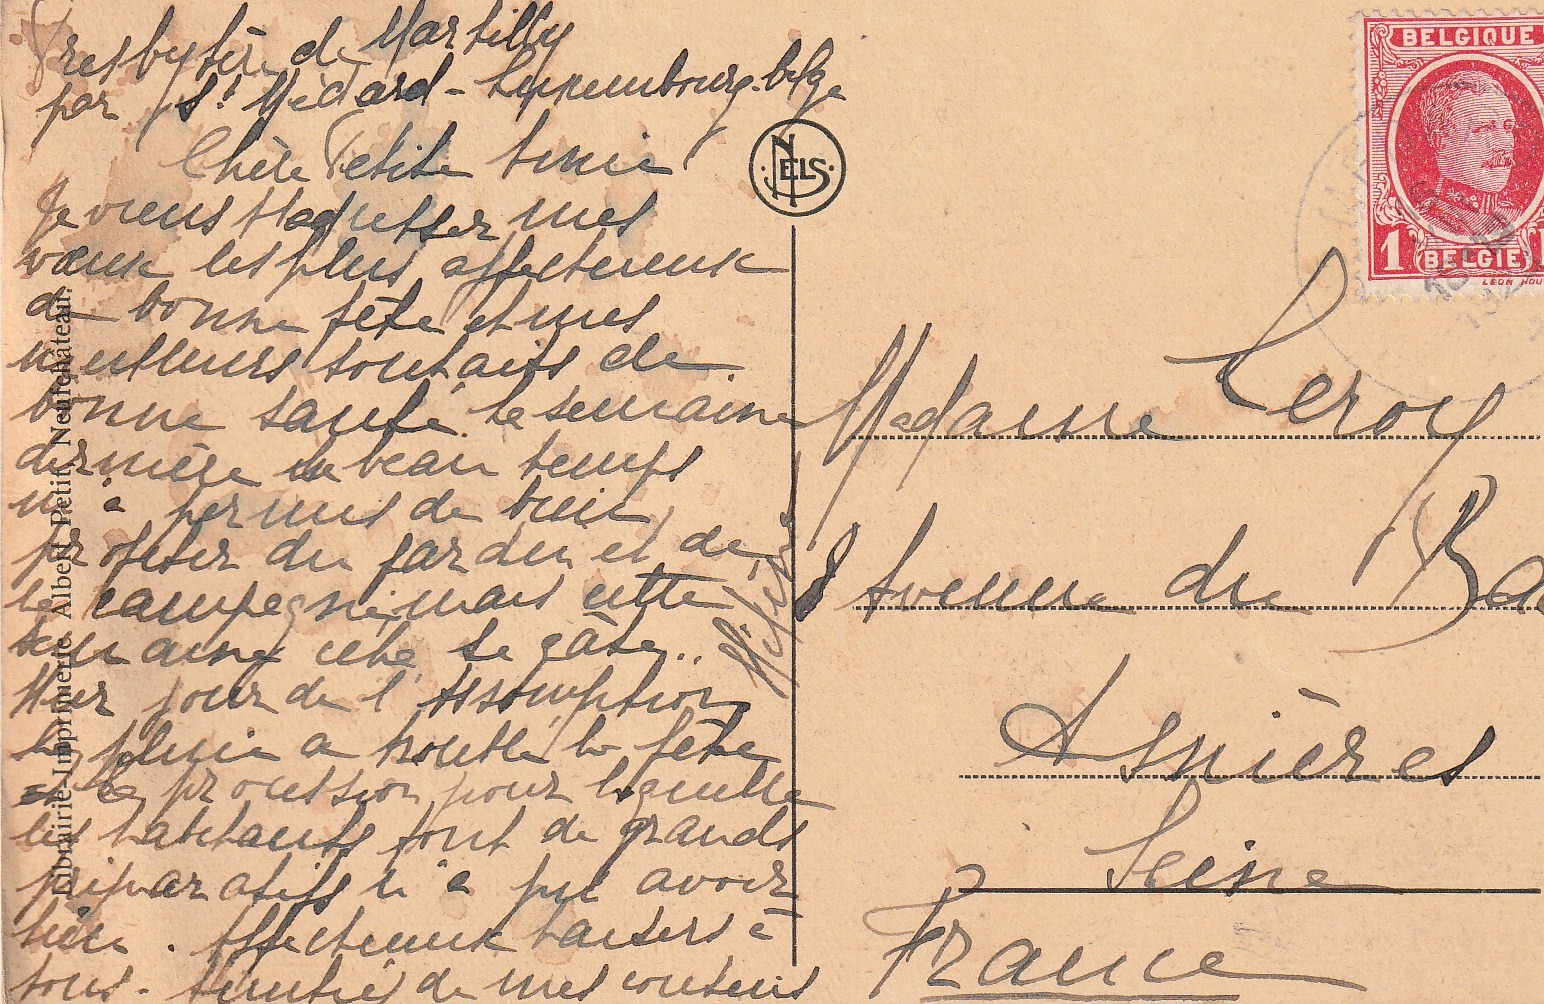 Presbytère de Martilly
par St Médard - Luxembourg-belge
Chère Petite
Je viens t'adresser mes
vœux les plus affectueux
de bonne fête et mes
meilleurs souhaits de
bonne santé. la semaine
dernière le beau temps
m'a permis de bien
profiter du jardin et de
la campagne, mais cette
semaine cela se gâte..
Hier jour de l'Assomption
la pluie a troublé la fête
et la procession pour laquelle
les habitants font de grands
préparatifs n'a pu avoir
lieu. Affectueux baisers à
tous. Amitiés de mes cousins
NELS
Librairie-Imprimerie Albert Petit, Neufchâteau.
BELGIQUE
1
BELGIË
LEON HOU
Madame Leroy
8 Avenue du Ba
Asnières
Seine
France